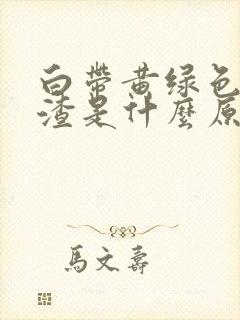 白带黄绿色
渣是什麽原
馬文壽